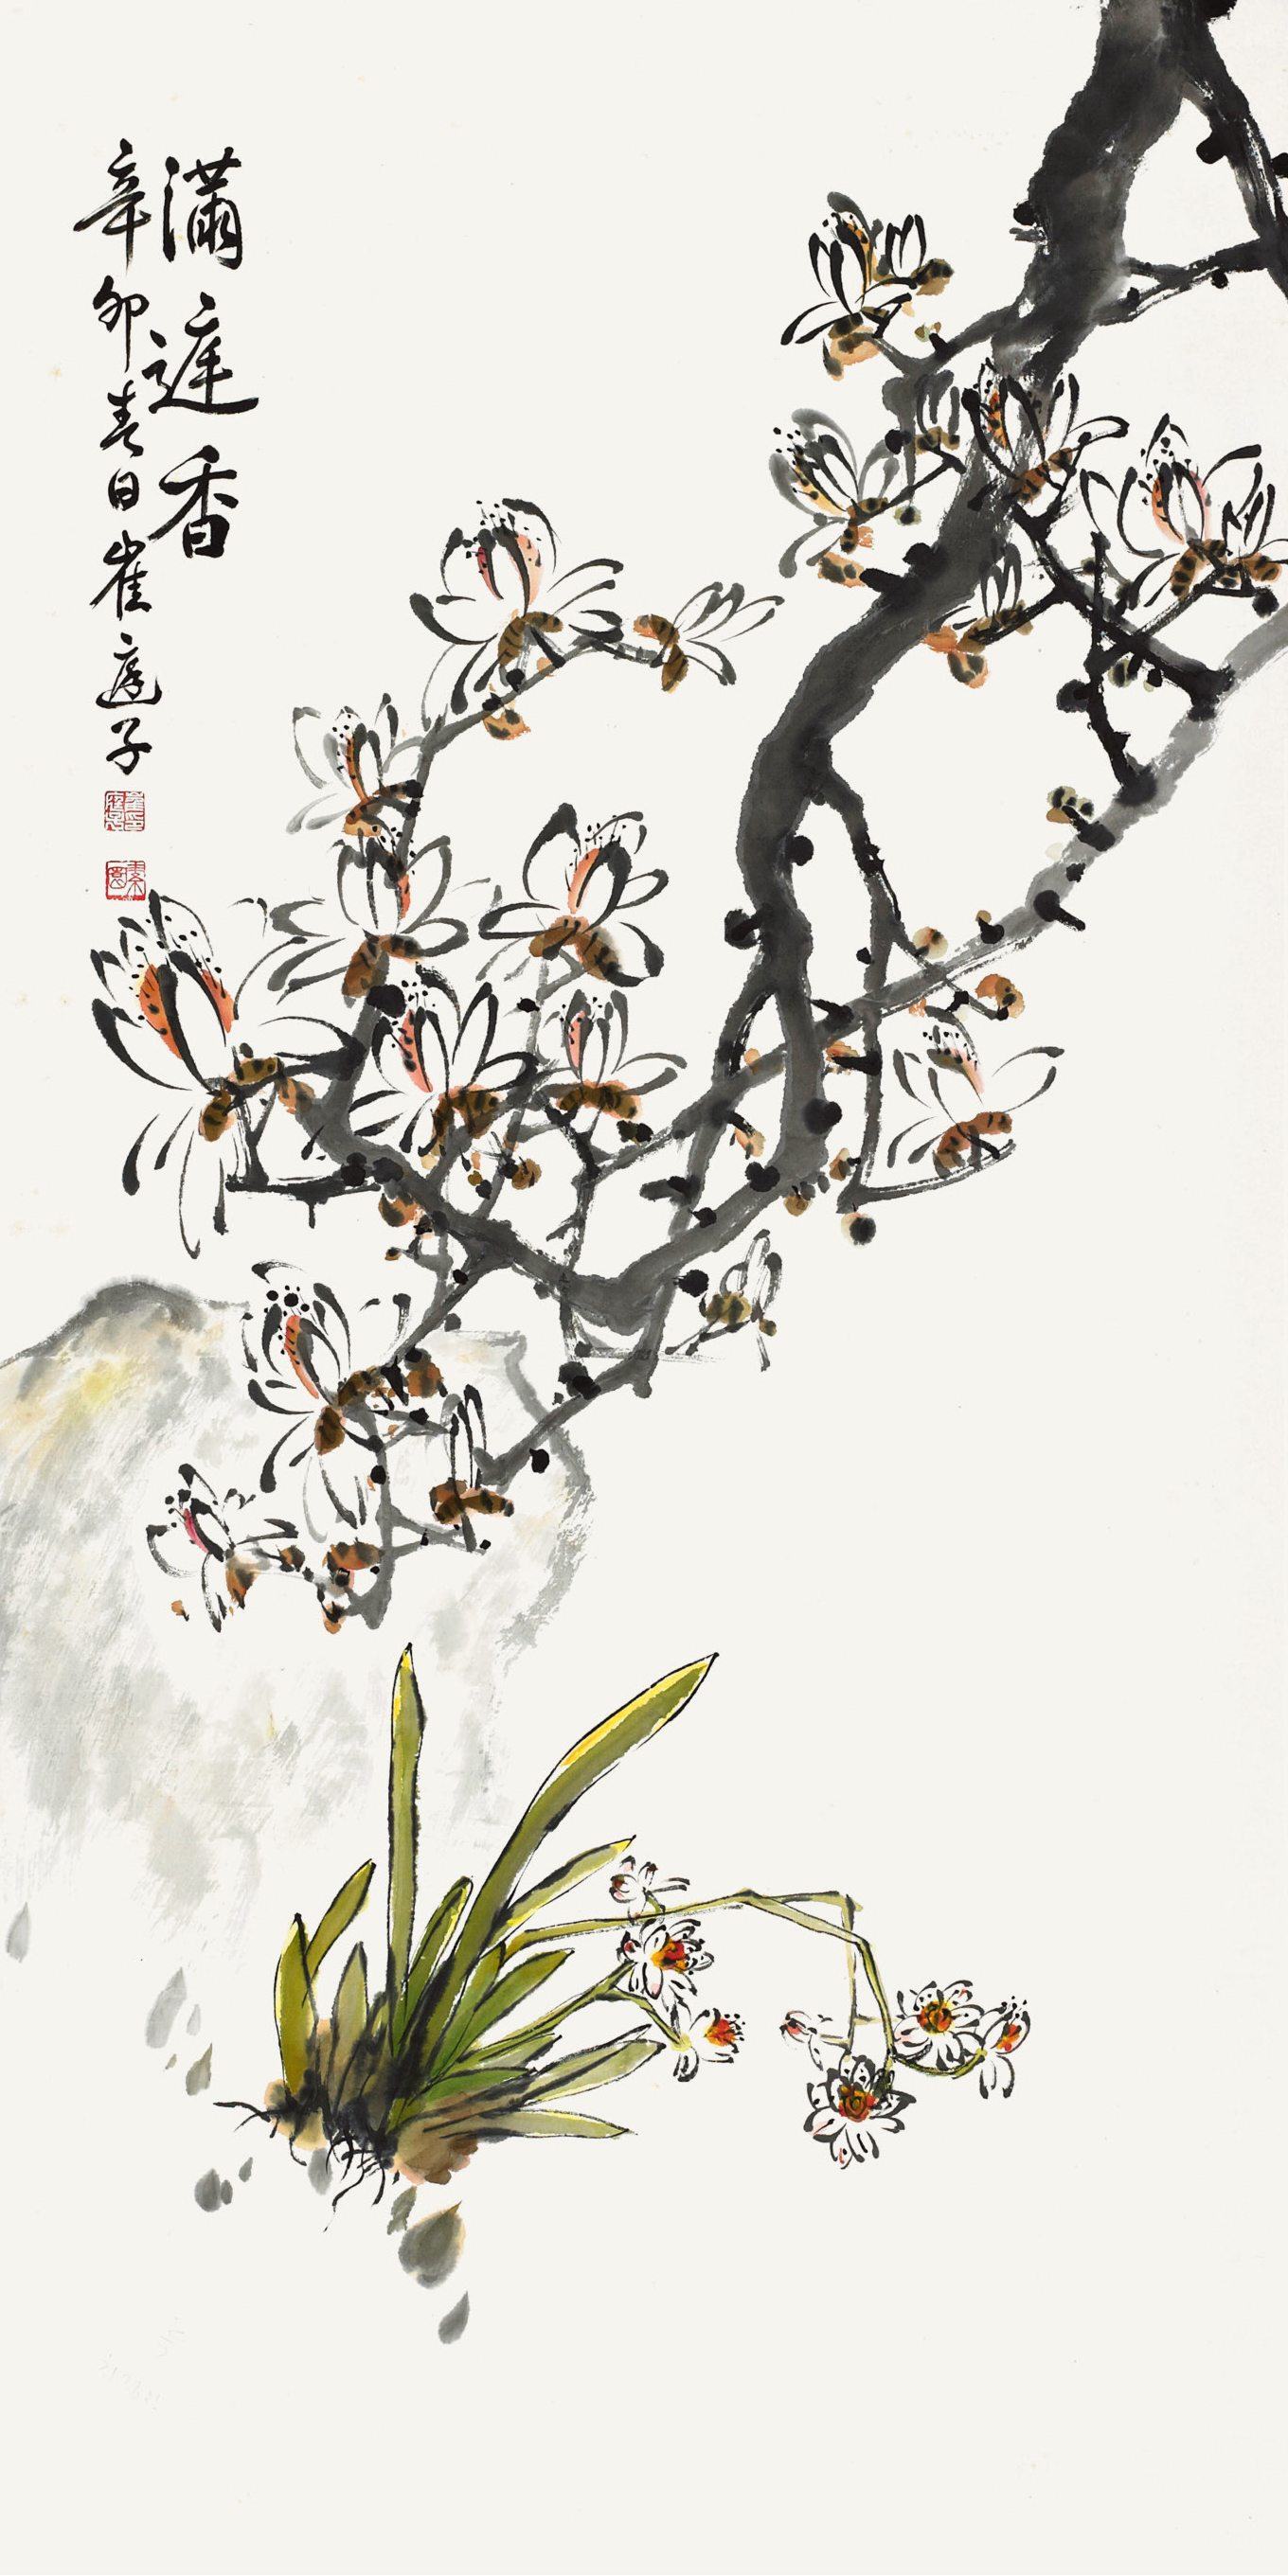 满庭香
辛卯春日崔庭子